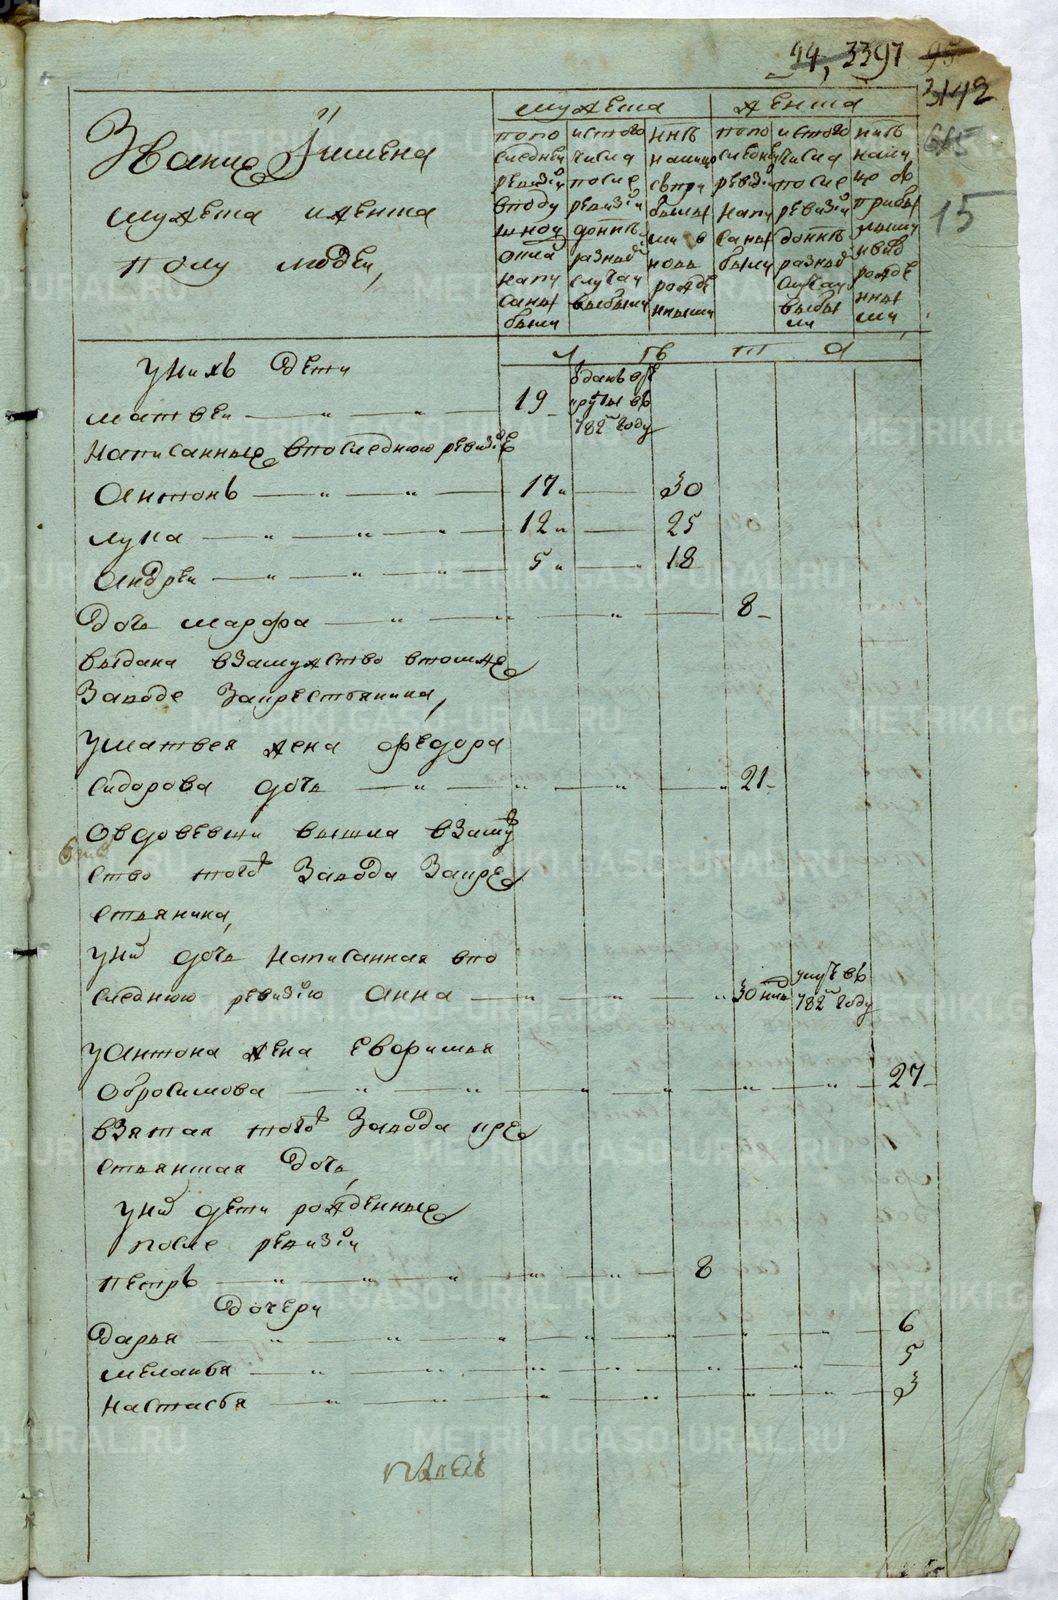 44, 3397 95
3142
615
15
мужеска женска
Звание Имена
мужеска иженска
полу людей,
попо следней ревизии вподу шной оклад напи саны были
истого числа после ревизии донне разные случаи выбыли
ныне налицо спри былы ми и в новь рожде нными
попо следней ревизии напи саны были
истого числа после ревизии донне разные случаи выбы ли
ныне нали цо со прибы лыми ивно рожде нны ми
л ѣ т а
уних дети
матвеи 19 отдан в рекруты въ 782м году
написанные впоследнюю ревизию
Антонъ 17 30
лука 12 25
Андреи 5 18
Дочь марфа 8
выдана взамужство втомже
Заводе Закрестьянина,
уматвея жена федора
сидорова дочь 21
овдовевши вышла взамуж
ство того Завода Закре
стьянина,
уних дочь написанная впо
следнюю ревизию анна 30 нед умре въ 782м году
уАнтона жена евфимья
обросимова 27
взятая того Завода кре
стьянская Дочь,
уних дети рожденные
после ревизии
петръ 8
Дочери
Дарья 6
меланья 5
настасья 3
METRIKI.GASO-URAL.RU